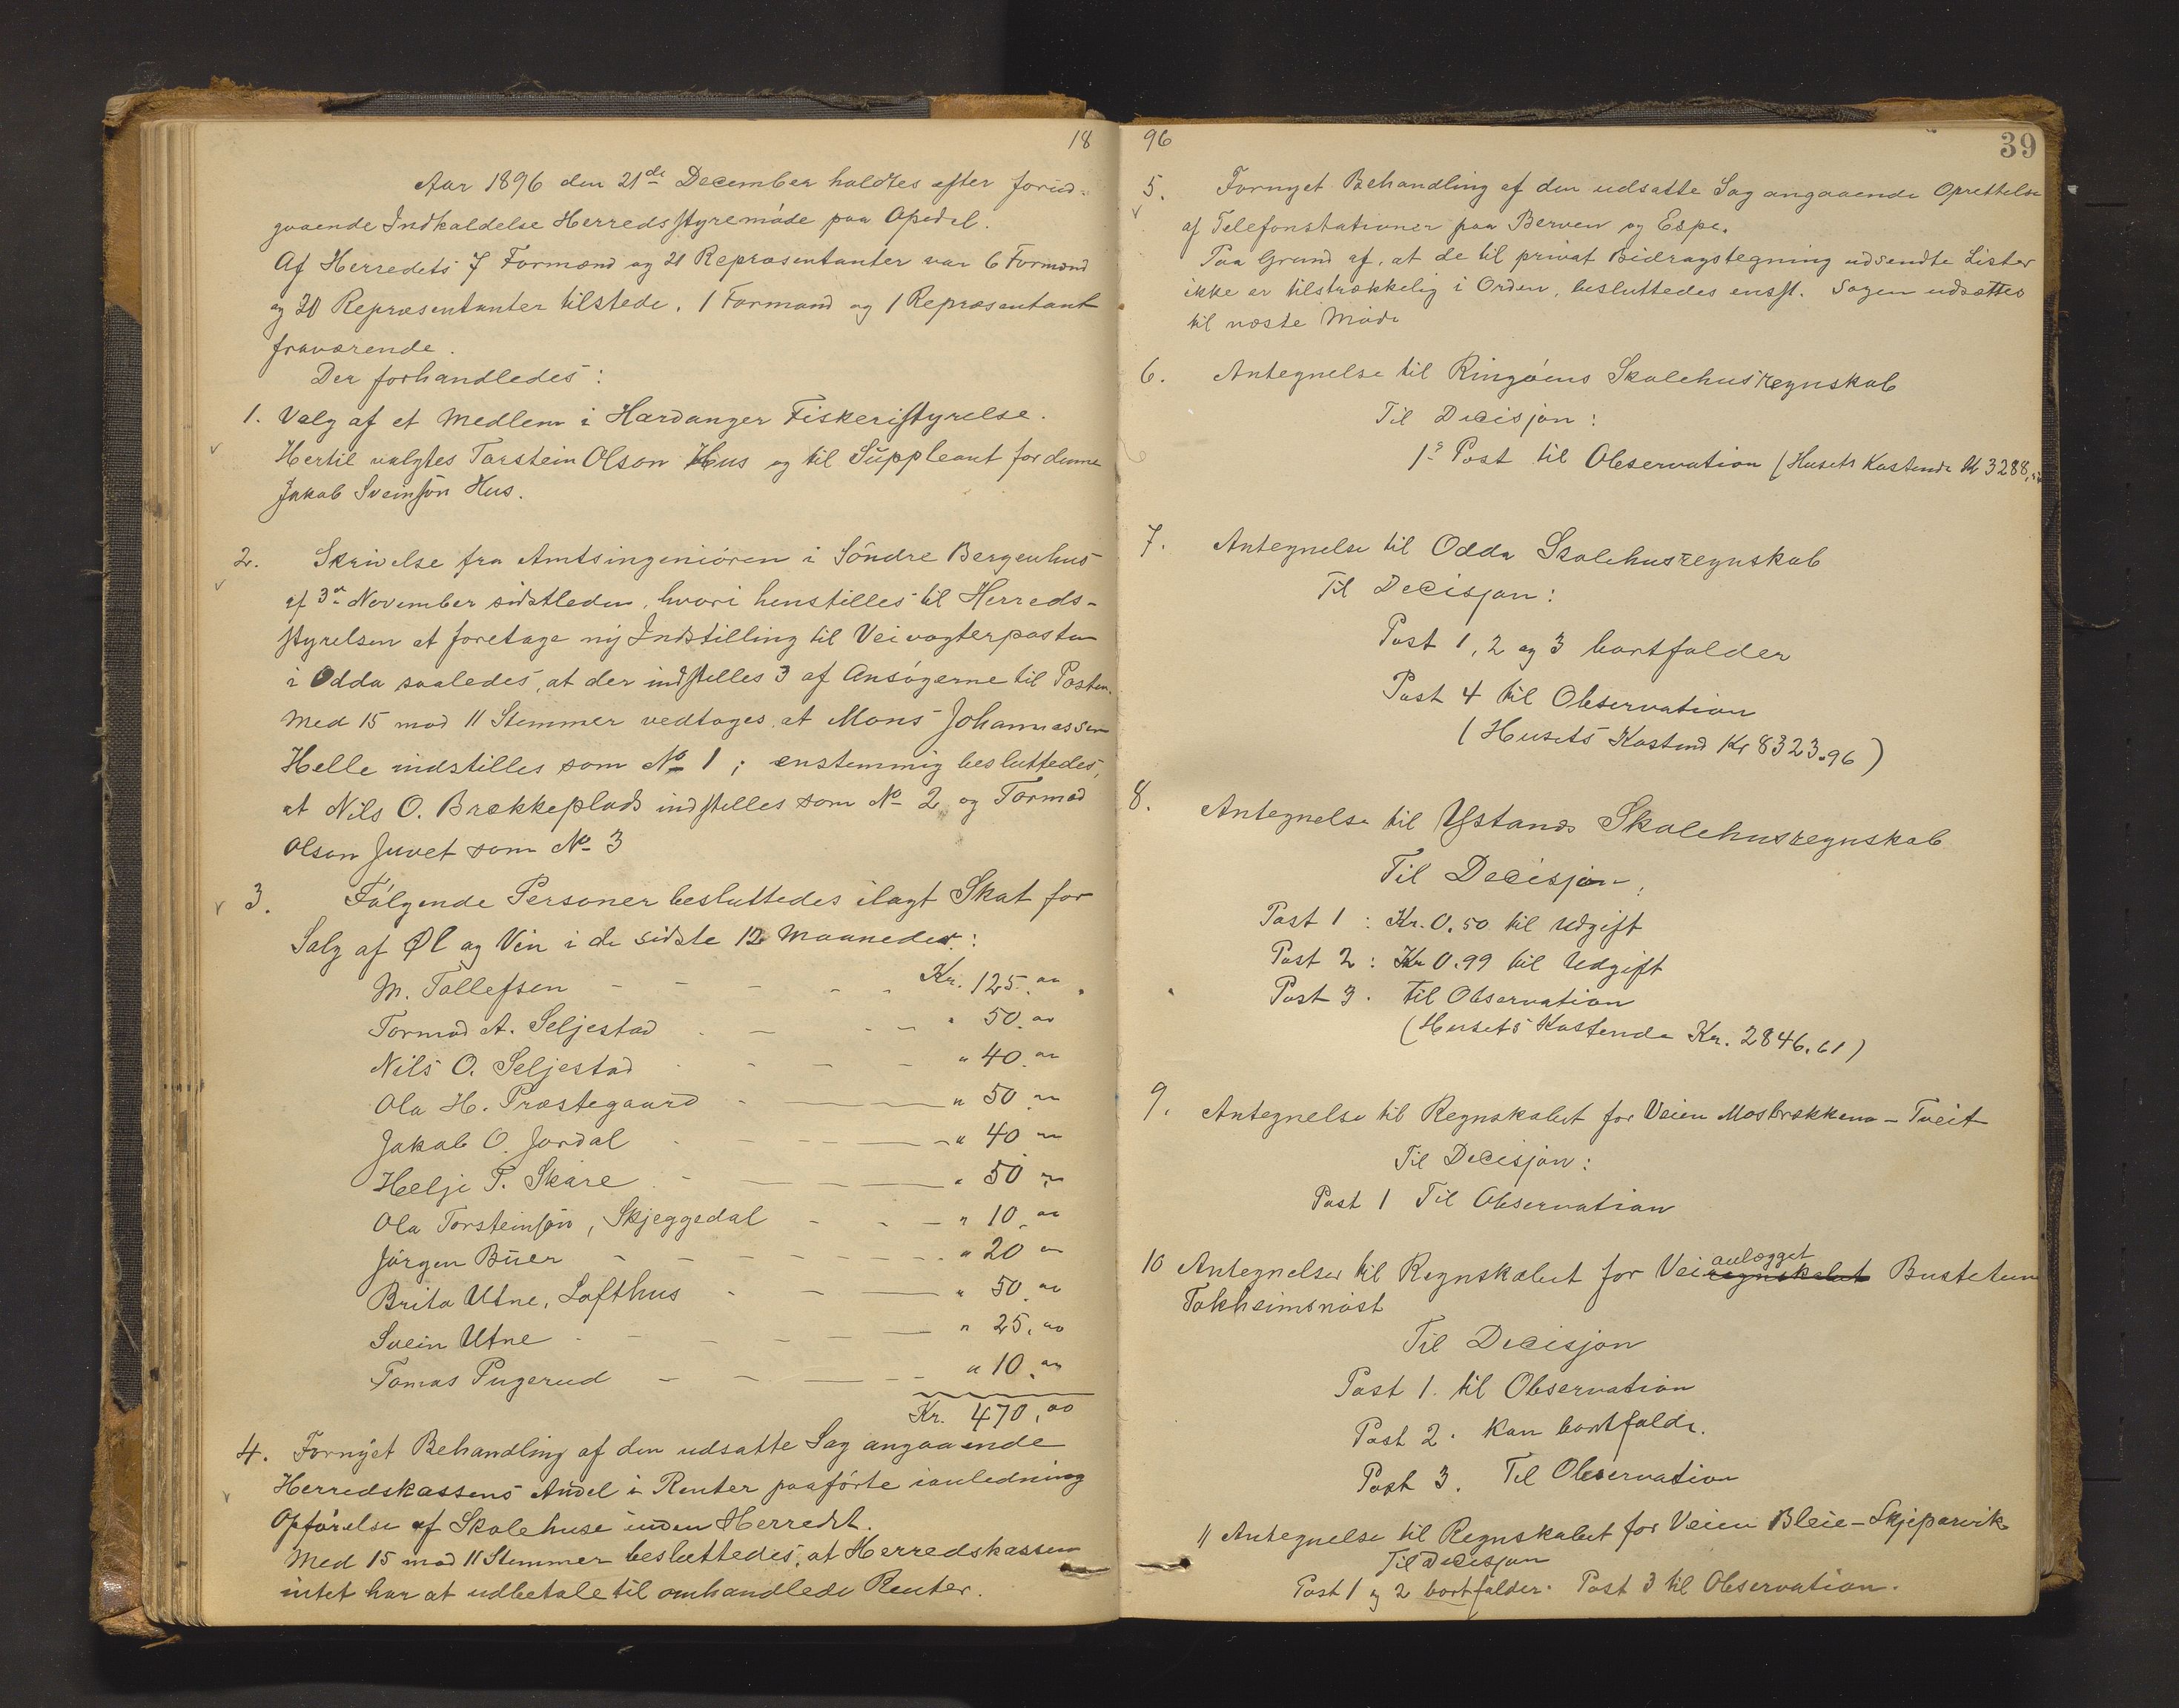 18
Aar 1896 den 21de December holdtes efter forud-
gaaende Indkaldelse Herredsstyremøde paa Opedal.
Af Herredets 7 Formænd og 21 Repræsentanter var 6 Formænd
og 20 Repræsentanter tilstede. 1 Formand og 1 Repræsentant
fraværende.
Der forhandledes:
1. Valg af et Medlem i Hardanger Fiskeristyrelse.
Hertil valgtes Torstein Olson Hus og til Suppleant for denne
Jakob Sveinsøn Hus.
2. Skrivelse fra Amtsingeniøren i Søndre Bergenhus
af 3die November sidstleden, hvori henstilles til Herreds-
styrelsen at foretage ny Indstilling til Veivogterposten
i Odda saaledes, at der indstilles 3 af Ansøgerne til Posten.
Med 15 mod 11 Stemmer vedtoges at Mons Johannessen
Helle indstilles som No 1; enstemmig besluttedes,
at Nils O. Brækkeplads indstilles som No 2 og Tormod
Olson Juvet som No 3
3. Følgende Personer besluttedes ilagt Skat for
Salg af Øl og Vin i de sidste 12 Maaneder:
M. Tollefsen - - - - - Kr. 125.00
Tormod A. Seljestad - - - - " 50.00
Nils O. Seljestad - - - - " 40.00
Ola H. Præstegaard - - - " 50.00
Jakob O. Jordal - - - - " 40 00
Helje T. Skare - - - - " 50 00
Ola Torsteinsøn, Skjeggedal - - - " 10.00
Jørgen Buer - - - - - - " 20 00
Brita Utne, Lofthus - - - " 50.00
Svein Utne - - - - - " 25.00
Tomas Pugerud - - - - " 10.00
Kr. 470,00
4. Fornyet Behandling af den udsatte Sag angaaende
Herredskassens Andel i Renter paaførte ianledning
Opførelse af Skolehuse inden Herredet.
Med 15 mod 11 Stemmer besluttedes, at Herredskassen
intet har at udbetale til omhandlede Renter.
96
39
5. Fornyet Behandling af den udsatte Sag angaaende Oprettelse
af Telefonstationer paa Berven og Espe.
Paa Grund af, at de til privat Bidragstegning udsendte Lister
ikke er tilstrækkelig i Orden, besluttedes enst. Sagen udsættes
til næste Møde
6. Antegnelse til Ringøens Skolehusregnskab
Til Decisjon:
1s Post til Observation (Husets Kostende Kr 3288,
7. Antegnelse til Odda Skolehusregnskab
Til Decisjon:
Post 1, 2 og 3 bortfalder
Post 4 til Observation
(Husets Kostend Kr 8323.96)
8. Antegnelse til Ystanes Skolehusregnskab
Til Decisjon:
Post 1 : Kr. 0.50 til Udgift
Post 2 : Kr 0.99 til Udgift
Post 3. Til Observation
(Husets Kostende Kr. 2846.61)
9. Antegnelse til Regnskabet for Veien Mosbrækkene - Tveit
Til Decisjon:
Post 1 Til Observation
10 Antegnelser til Regnskabet for Veiregnskabet anlægget Bustetun
Tokheimsnøst
Til Decisjon
Post 1. til Observation
Post 2. kan bortfalde.
Post 3. Til Observation
11 Antegnelse til Regnskabet for Veien Bleie - Skjeparvik
Til Decisjon
Post 1 og 2 bortfalder. Post 3 til Observation.